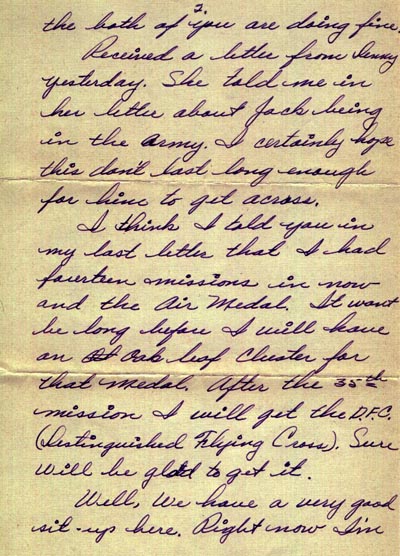 2.
the both of you are doing fine.
Received a letter from Jenny
yesterday. She told me in
her letter about Jack being
in the army. I certainly hope
this don't last long enough
for him to get across.
I think I told you in
my last letter that I had
fourteen missions in now
and the Air Medal. It wont
be long before I will have
an Oak leaf Cluster for
that medal. After the 35th
mission I will get the D.F.C.
(Distinguished Flying Cross). Sure
will be glad to get it.
Well, We have a very good
sit-up here. Right now I'm